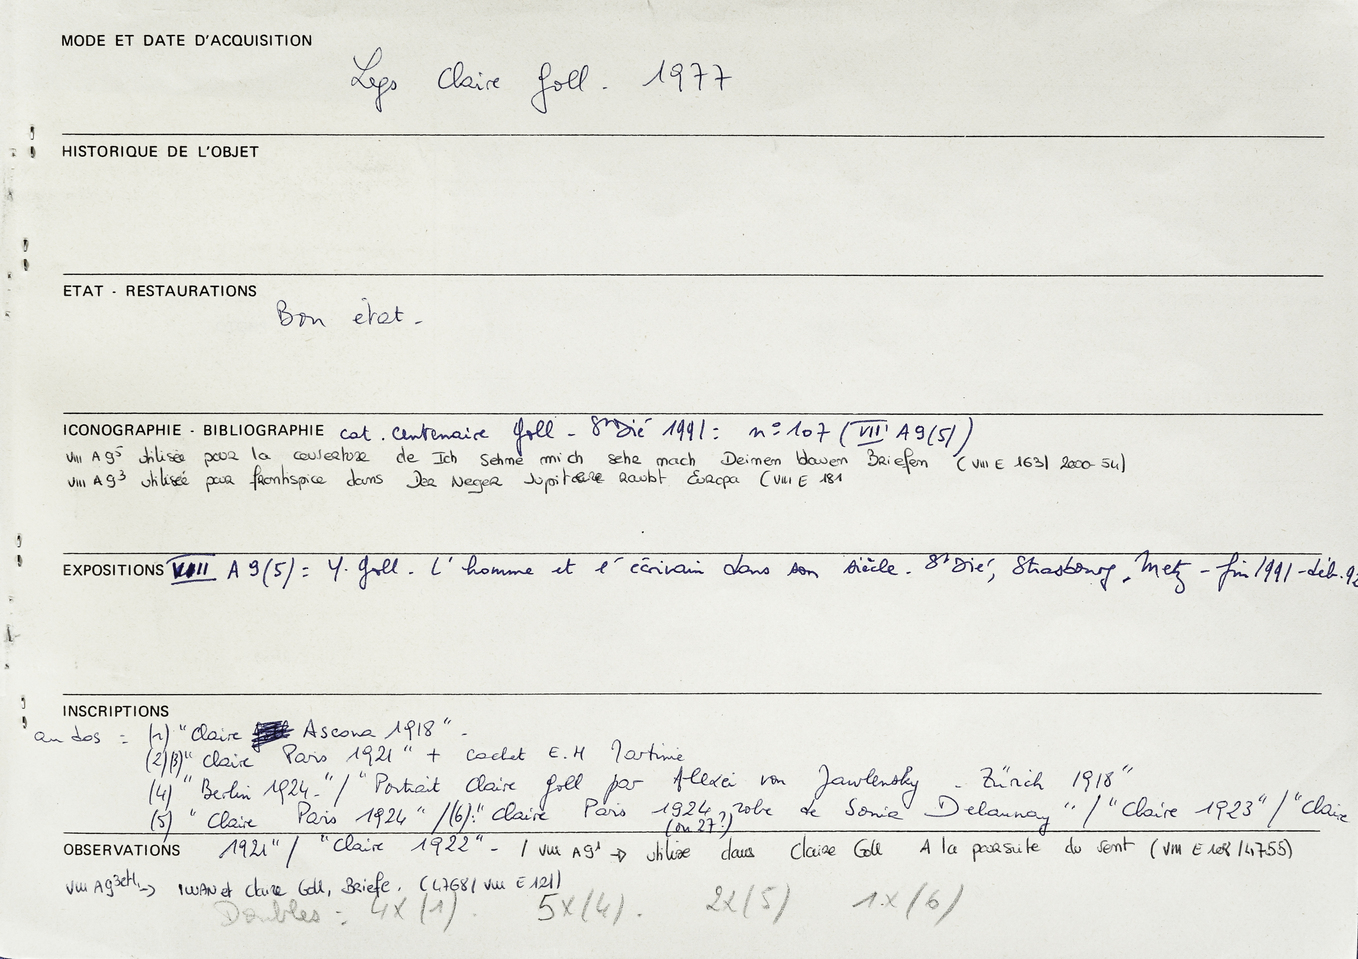 MODE ET DATE D'ACQUISITION
Legs Claire Goll. 1977
HISTORIQUE DE L'OBJET
ETAT - RESTAURATIONS
Bon état -
ICONOGRAPHIE - BIBLIOGRAPHIE cat. centenaire Goll - St Dié 1991 : n° 107 (VII A9(5))
VIII A9⁵ utilisée pour la couverture de Ich Sehne mich sehr nach Deinen blauen Briefen (VIII E 163/ 2000-54)
VIII A9³ utilisée pour frontispice dans Der Neger Jupiter raubt Europa (VIII E 181
EXPOSITIONS VIII A 9(5) : Y. Goll. L'homme et l'écrivain dans son siècle. St Dié, Strasbourg, Metz - fin 1991 - déb. 92
INSCRIPTIONS
au dos : (1) "Claire Ascona 1918" -
(2)(3) "Claire Paris 1921" + cachet E.H Martinie
(4) "Berlin 1924-"/ "Portrait Claire Goll par Alexei von Jawlensky - Zürich 1918"
(5) "Claire Paris 1924" /(6): "Claire Paris 1924, robe de Sonia Delaunay"/ "Claire 1923"/ "Claire
(ou 27?)
OBSERVATIONS 1921"/ "Claire 1922" - / VIII A9¹ → utilisé dans Claire Goll A la poursuite du vent (VIII E 128 /4755)
VIII A9 → IWAN et Claire Goll, Briefe. (4768/ VIII E 121)
Doubles : 4x (1). 5x (4). 2x (5) 1x (6)